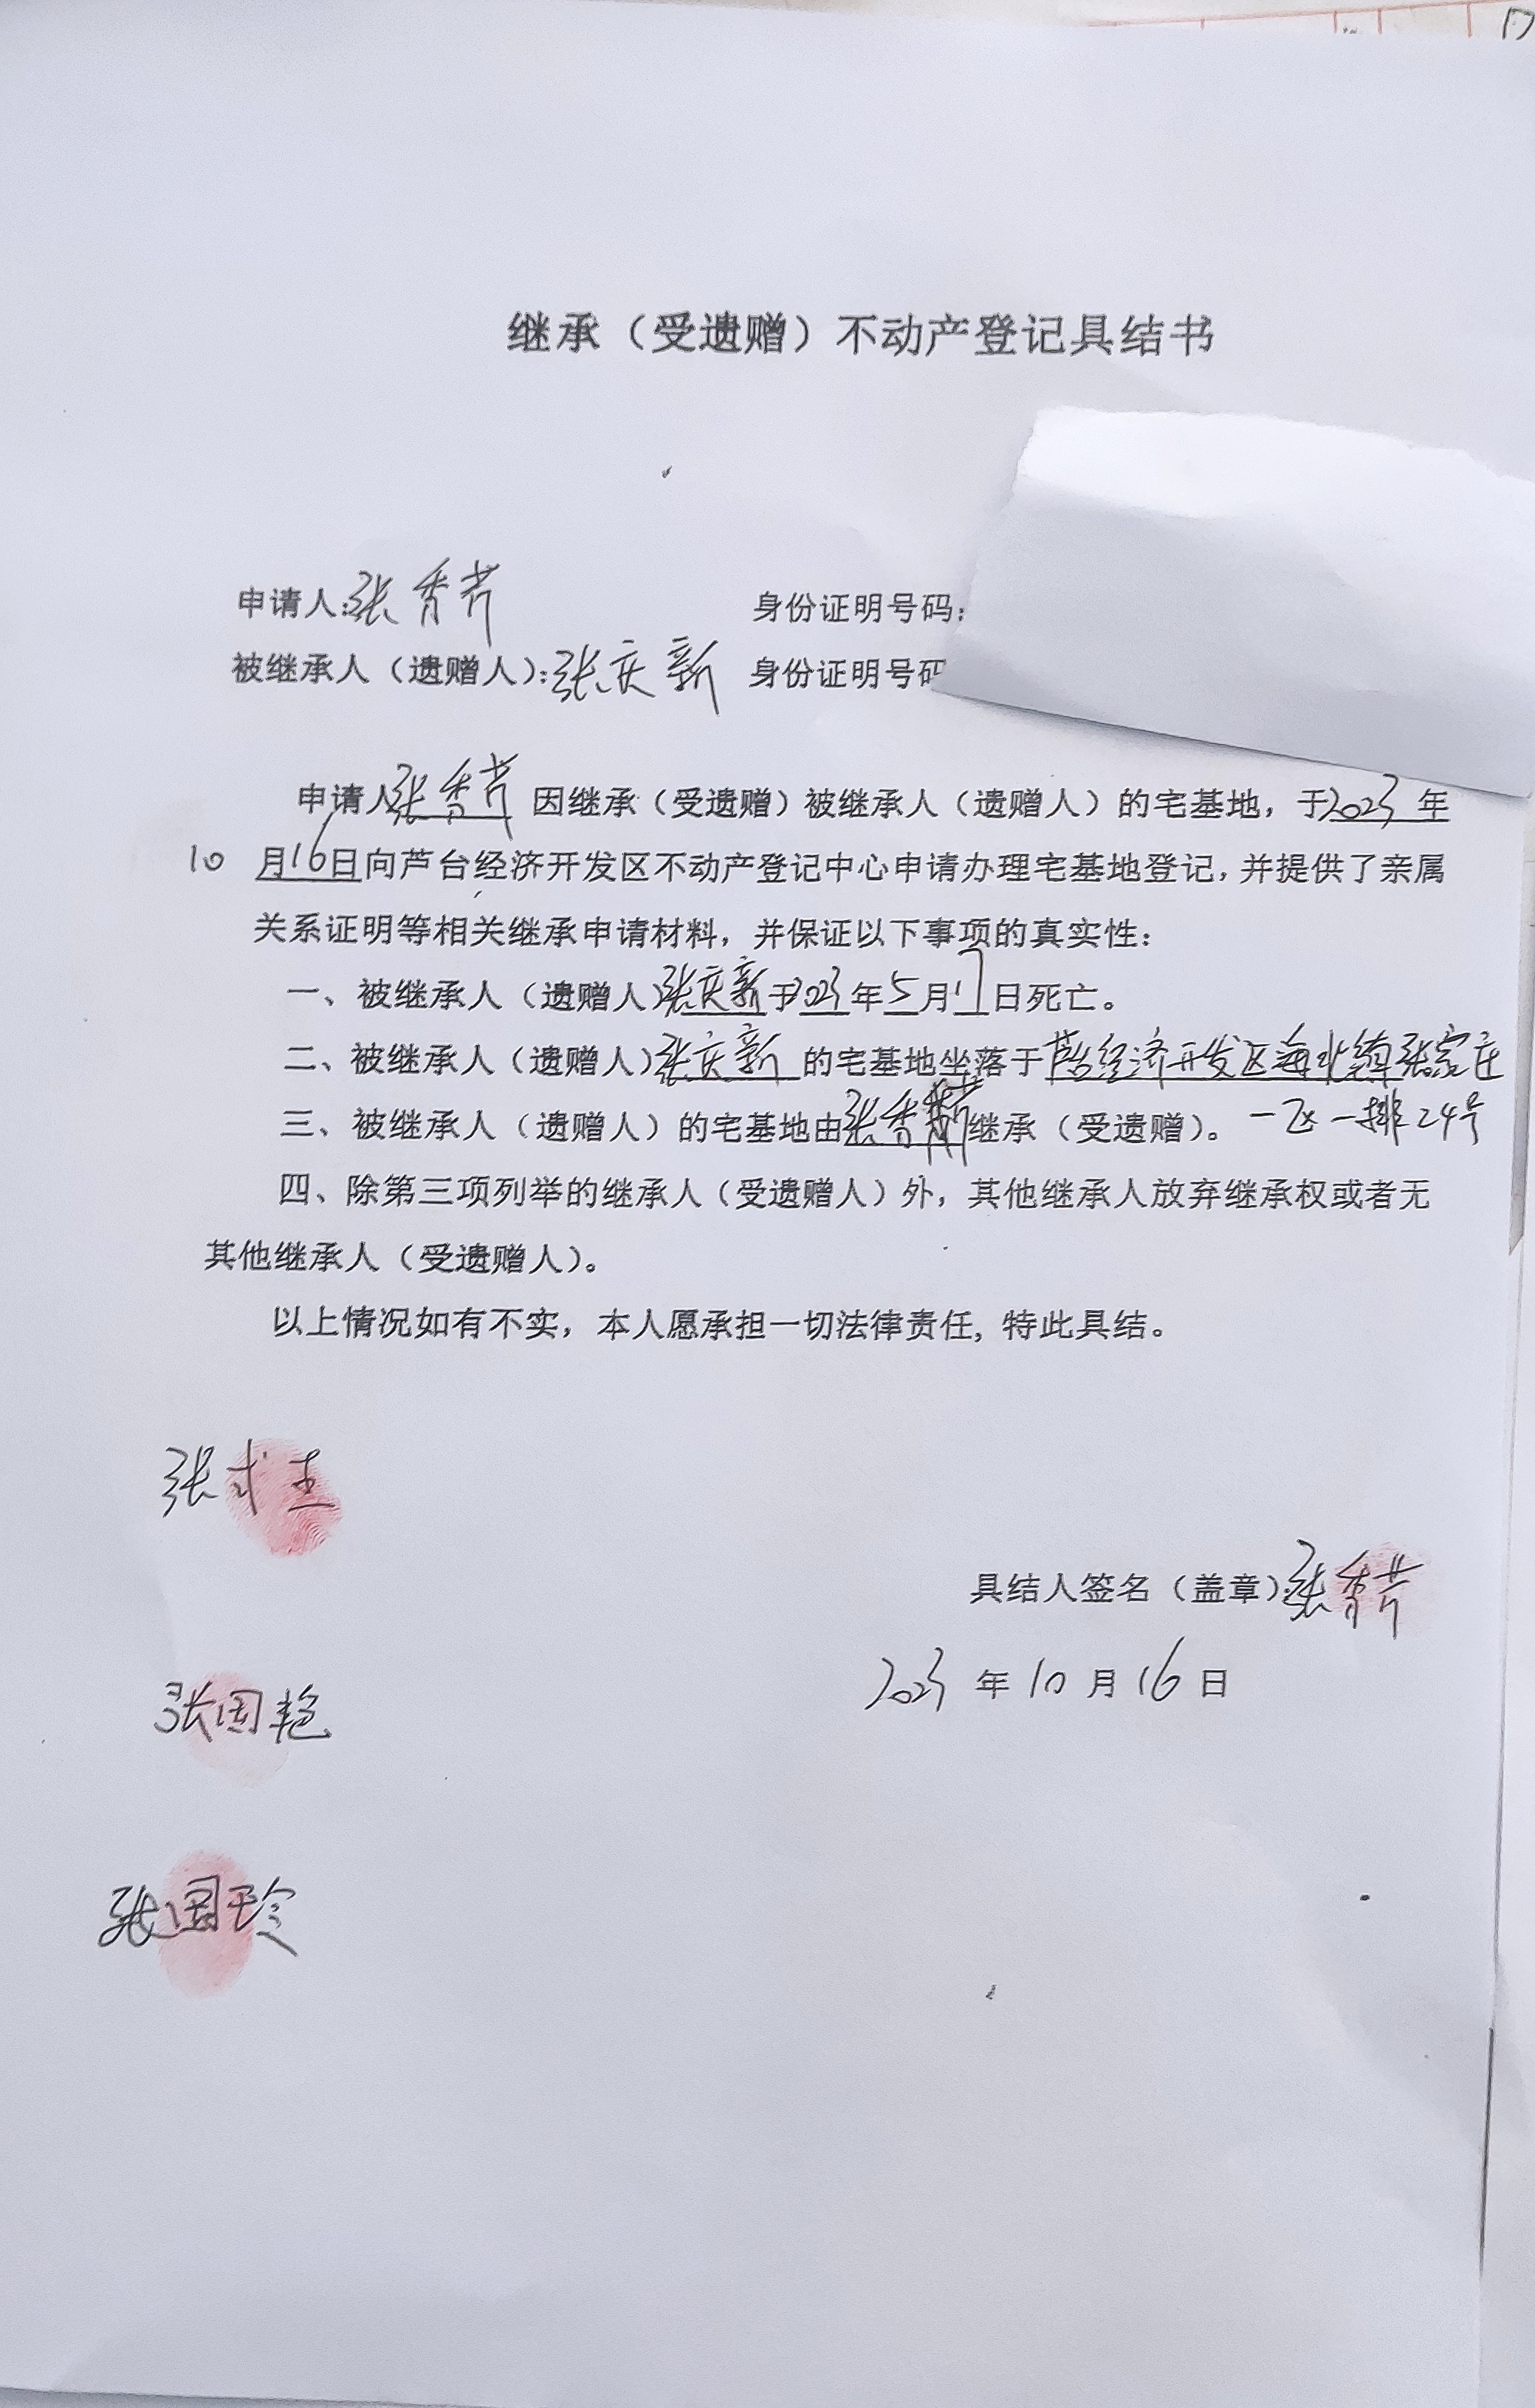 继承（受遗赠）不动产登记具结书
申请人：张香芹 身份证明号码：
被继承人（遗赠人）：张庆新 身份证明号码
申请人张香芹因继承（受遗赠）被继承人（遗赠人）的宅基地，于2023年
10月16日向芦台经济开发区不动产登记中心申请办理宅基地登记，并提供了亲属
关系证明等相关继承申请材料，并保证以下事项的真实性：
一、被继承人（遗赠人）张庆新于2023年5月17日死亡。
二、被继承人（遗赠人）张庆新的宅基地坐落于芦台经济开发区海北镇张家庄
一区一排24号
三、被继承人（遗赠人）的宅基地由张香芹继承（受遗赠）。
四、除第三项列举的继承人（受遗赠人）外，其他继承人放弃继承权或者无
其他继承人（受遗赠人）。
以上情况如有不实，本人愿承担一切法律责任，特此具结。
张
具结人签名（盖章）：张香芹
2023年10月16日
张国艳
张国玲